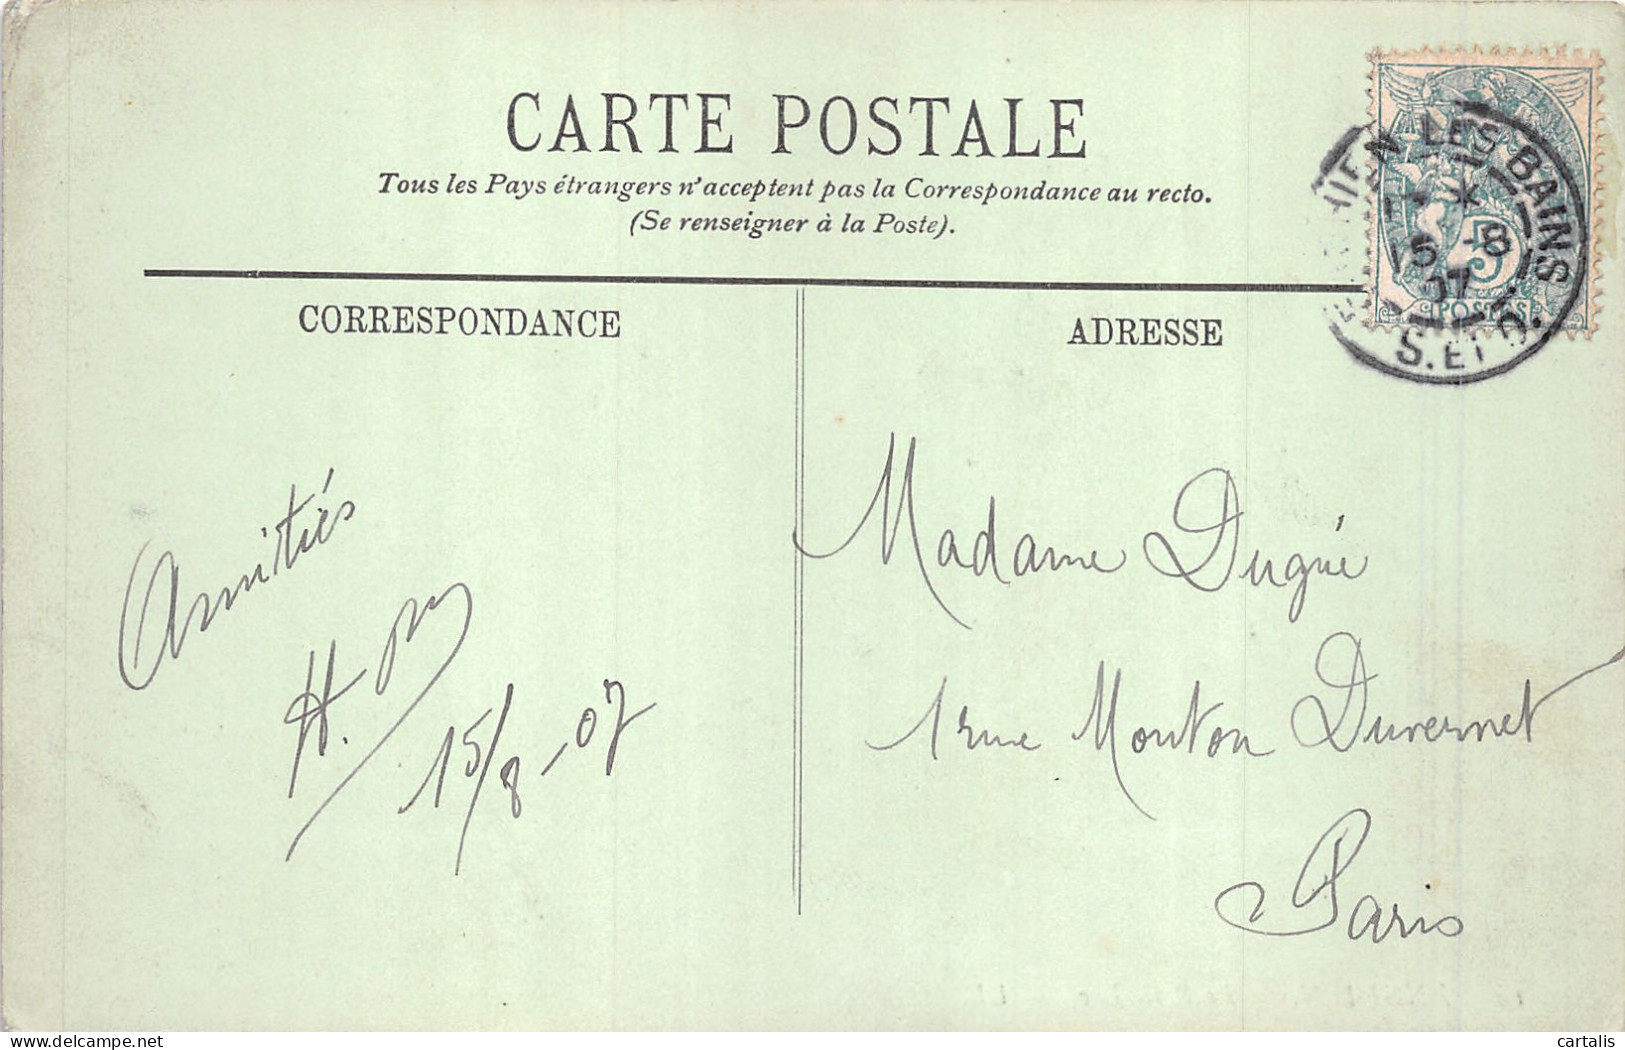 CARTE POSTALE
Tous les Pays étrangers n'acceptent pas la Correspondance au recto.
(Se renseigner à la Poste).
CORRESPONDANCE
ADRESSE
LES BAINS
15 -8
07
S. ET O.
5
POSTES
Amitiés
H.
15/8-07
Madame Dugué
1 rue Mouton Duvernet
Paris
delcampe.net
cartalis